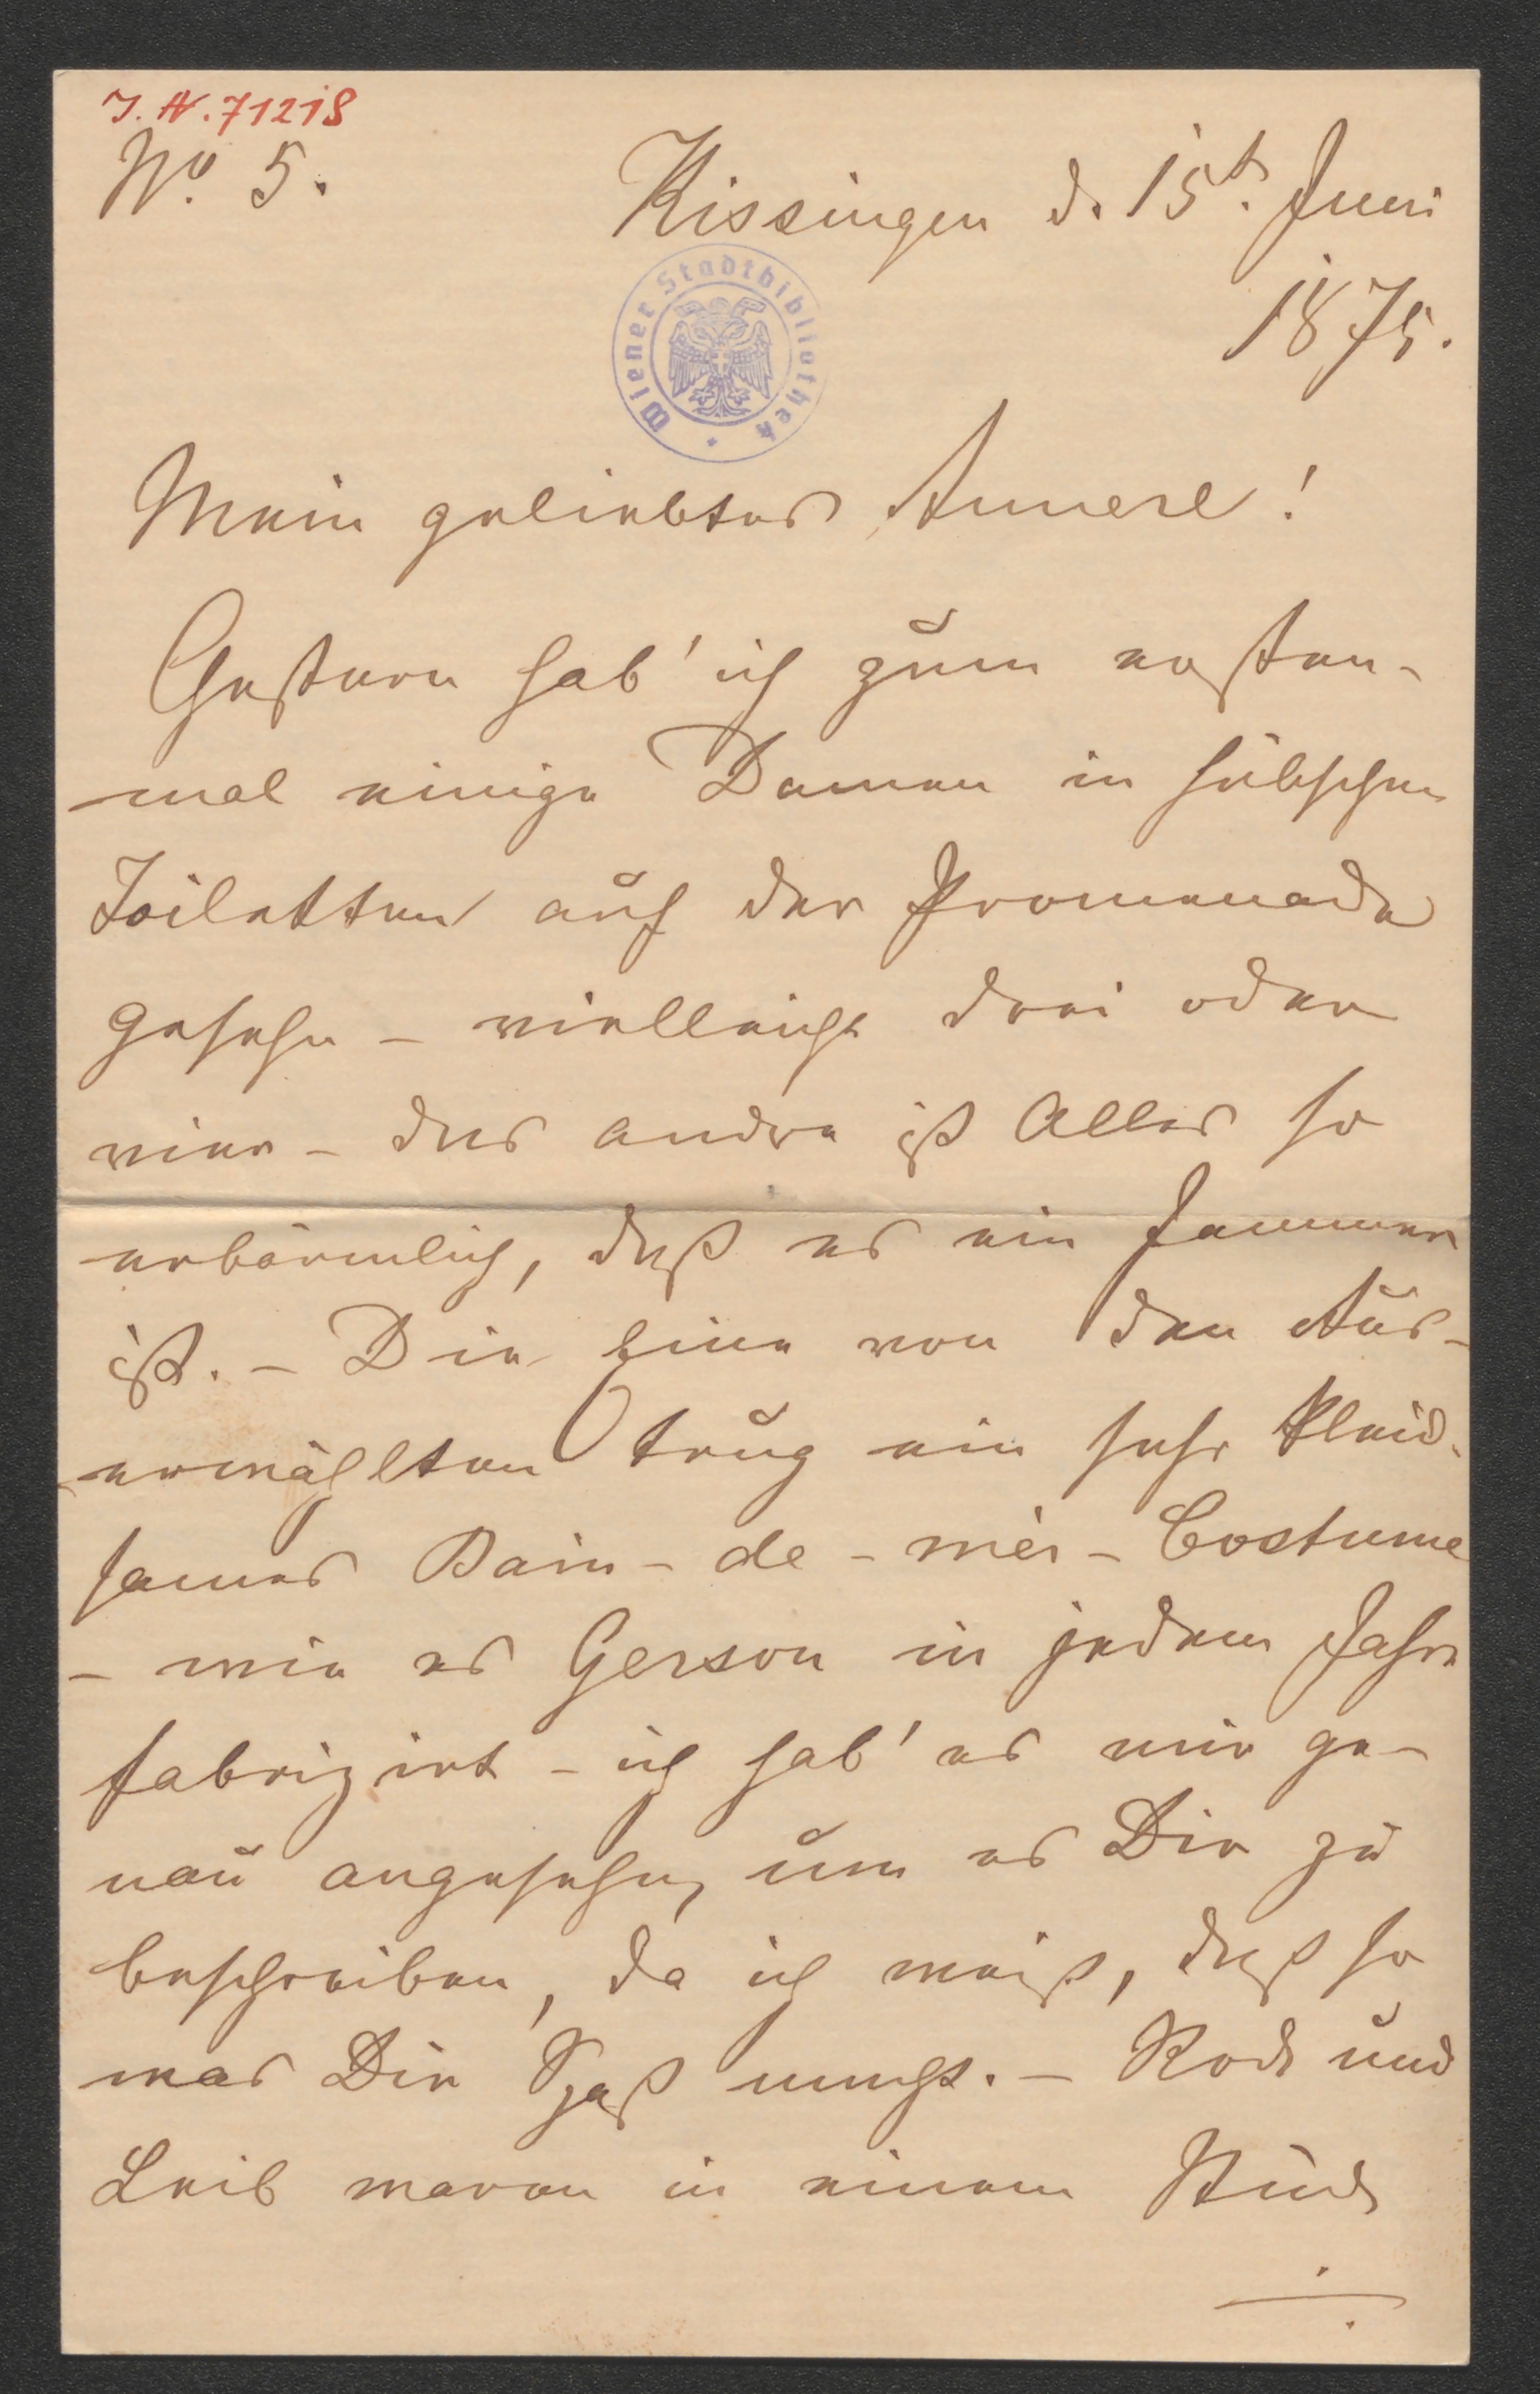 J. N. 71218
No. 5.
Kissingen d. 15t. Juni
1875.
Wiener Stadtbibliothek
Mein geliebtes Annerl!
Gestern hab' ich zum ersten-
mal einige Damen in hübschen
Toiletten auf der Promenade
gesehn – vielleicht drei oder
vier – das andre ist Alles so
erbärmlich, daß es ein Jammer
ist. – Die Eine von den Aus-
erwählten trug ein sehr kleid-
sames Bain-de-mèr-Costume
– wie es Gerson in jedem Jahre
fabrizirt – ich hab' es mir ge-
nau angesehn, um es Dir zu
beschreiben, da ich weiß, daß so
was Dir Spaß macht. – Rock und
Leib waren in einem Stück